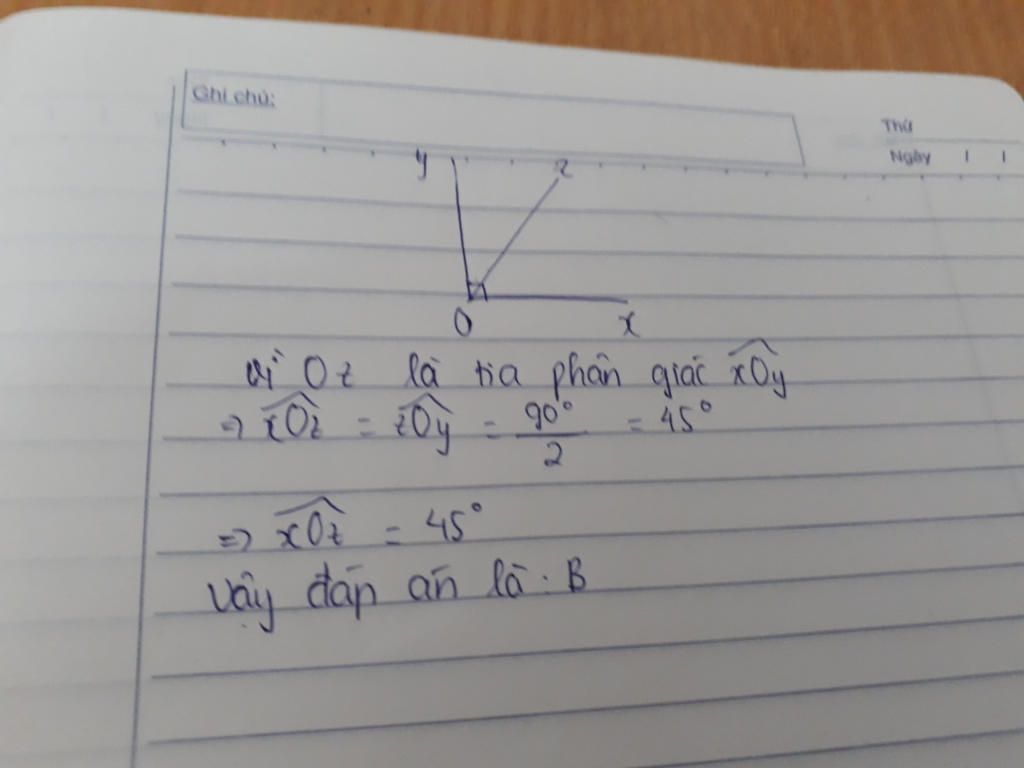 Ghi chú:
Thứ
Ngày / /
y z
O x
vì Oz là tia phân giác xOy
⇒ xOz = zOy = 90°/2 = 45°
⇒ xOz = 45°
Vậy đáp án là: B